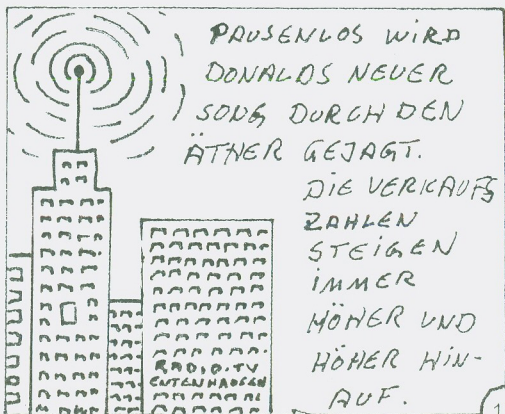 PAUSENLOS WIRD
DONALDS NEUER
SONG DURCH DEN
ÄTHER GEJAGT.
DIE VERKAUFS
ZAHLEN
STEIGEN
IMMER
HÖHER UND
HÖHER HIN-
AUF.
RADIO.TV
ENTENHAUSEN
1